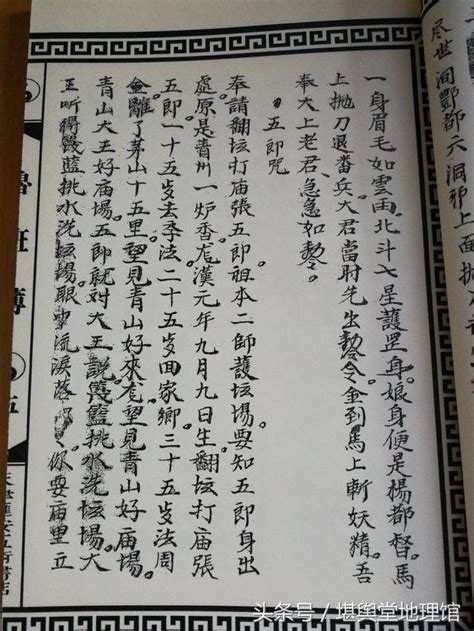 尽世洞酆都六洞邪上面抛
一身眉毛如雲雨。北斗七星護罡身。娘身便是楊都督。馬
上抛刀退畨兵。大君當时先出勅令。金到馬上斬妖精。吾
奉大上老君急急如勅令。
五郎咒
奉請翻坛打庙張五郎。祖本二師護坛場。要知五郎身出
處。原是青州一炉香。漢元年九月九日生。翻坛打庙張
五郎一十五岁去季法。二十五岁回家鄉。三十五岁法周
全。離了茅山十五里。望見青山好來。望見青山好庙場。
青山大王好庙場。五郎就对大王說。篾藍挑水洗坛場。大
王听得篾藍挑水洗坛場。眼中流淚落。你要庙里立
魯班 五
书店
头条号/堪舆堂地理馆